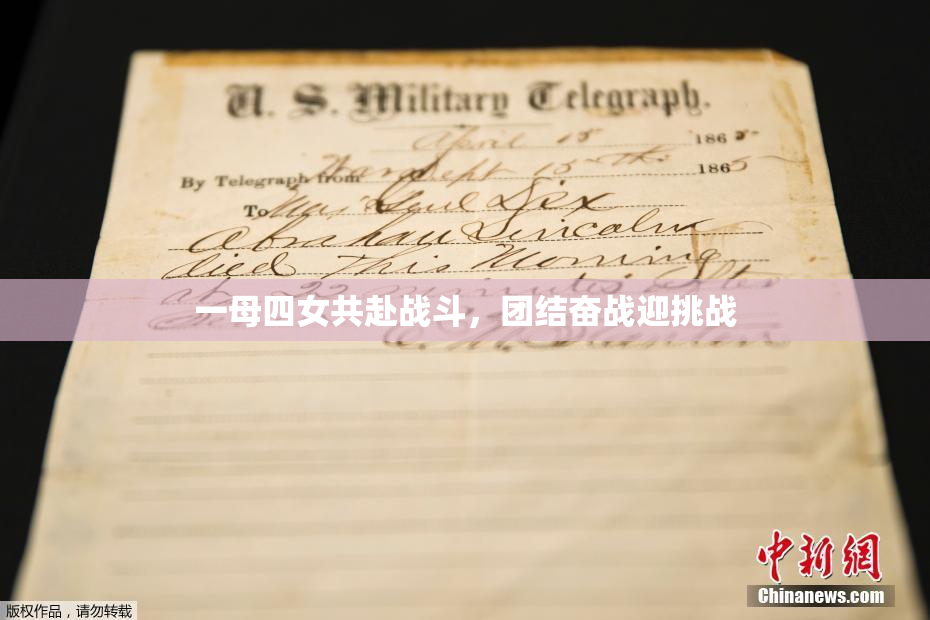 U. S. Military Telegraph.
April 15 1865
By Telegraph from War Dept 15th 1865
To Maj Genl Dix
Abraham Lincoln
died This Morning
at 22 minutes after
一母四女共赴战斗，团结奋战迎挑战
中新网
Chinanews.com
版权作品，请勿转载